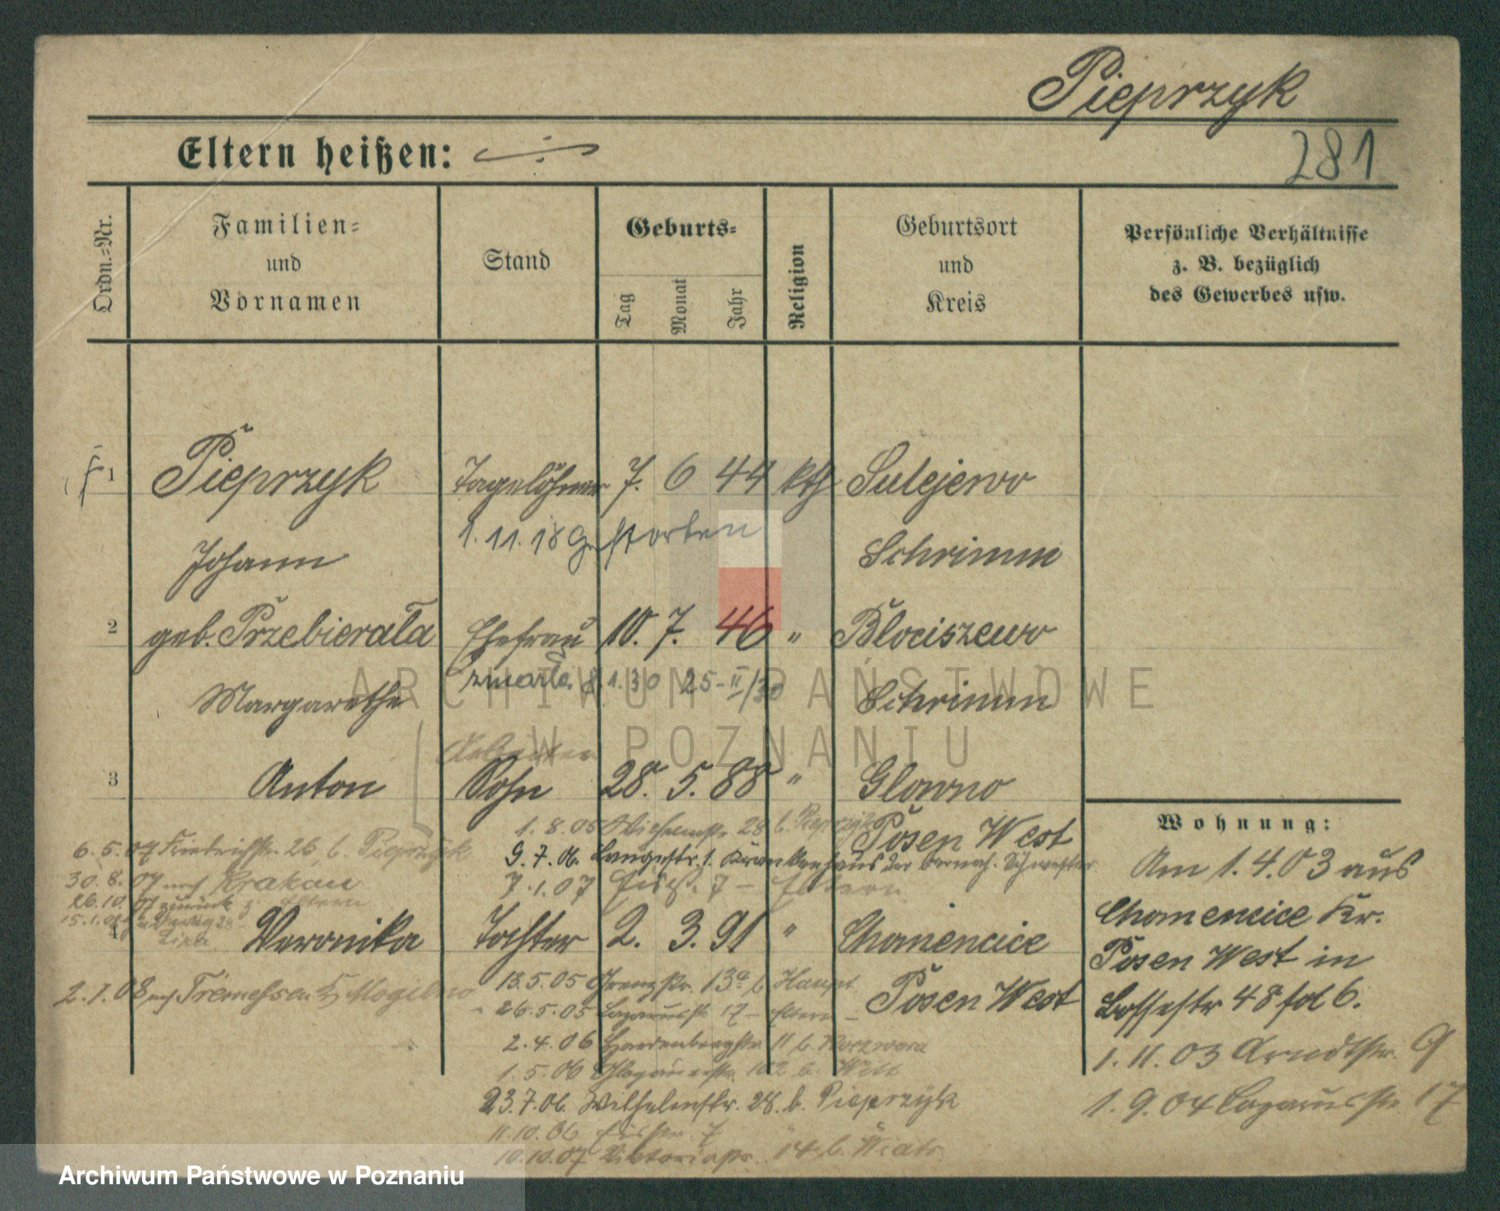 Pieprzyk
281
Eltern heißen: ·/·
Ordn.-Nr.
Familien-
und
Vornamen
Stand
Geburts-
Tag
Monat
Jahr
Religion
Geburtsort
und
Kreis
Persönliche Verhältnisse
z. B. bezüglich
des Gewerbes usw.
1 Pieprzyk Tagelöhner 7. 6 44 kth Sulejewo
1.11.18 gestorben
Johann Schrimm
2 geb. Przebierała Ehefrau 10. 7. 46 " Błociszewo
zmarła 8.1.30 25-II/30
Margarethe Schrimm
Arbeiter
3 Anton Sohn 28. 5. 88 " Glowno
1.8.05 Wilhelmstr. 28 b. Pieprzyk
Posen West
6.5.07 Friedrichstr. 26, b. Pieprzyk
9.7.06 Langestr. 1. Krankenhaus der barmh. Schwester
30.8.07 nach Krakau
7.1.07 7 - Eltern
26.10.07 zurück z. Eltern
15.1.08
4 Veronika Tochter 2. 3. 91 " Chomencice
13.5.05 13a b. Haupt
Posen West
2.1.08 nach Tremessen Kr. Mogilno
26.5.05 Lazarusstr. 17 - Eltern -
2.4.06 Hardenbergstr. 11 b.
1.5.06 b. Witt
23.7.06 Wilhelmstr. 28. b. Pieprzyk
11.10.06 7
10.10.07 Viktoriastr. 14, b.
Wohnung:
Am 1.4.03 aus
Chomencice Kr.
Posen West in
48 fol 6.
1.11.03 Arndtstr. 9
1.9.04 Lazarusstr. 17
ARCHIWUM PAŃSTWOWE
W POZNANIU
Archiwum Państwowe w Poznaniu